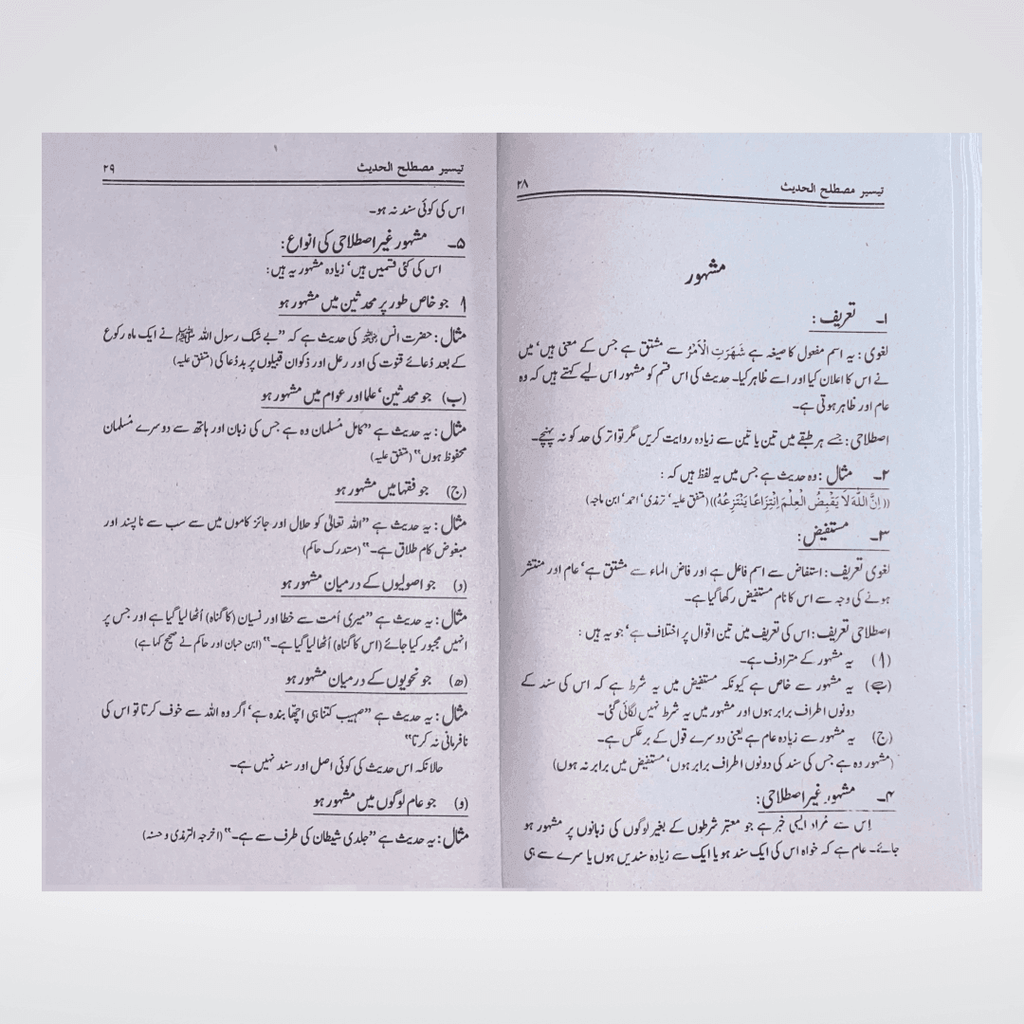 تیسیر مصطلح الحدیث ۲۸
مشہور
۱۔ تعریف :
لغوی : یہ اسم مفعول کا صیغہ ہے شَهَرْتُ الْاَمْرَ سے مشتق ہے جس کے معنی ہیں، میں
نے اس کا اعلان کیا اور اسے ظاہر کیا۔ حدیث کی اس قسم کو مشہور اس لیے کہتے ہیں کہ وہ
عام اور ظاہر ہوتی ہے۔
اصطلاحی : جسے ہر طبقے میں تین یا تین سے زیادہ روایت کریں مگر تواتر کی حد کو نہ پہنچے۔
۲۔ مثال : وہ حدیث ہے جس میں یہ لفظ ہیں کہ :
((اِنَّ اللّٰهَ لَا يَقْبِضُ الْعِلْمَ اِنْتِزَاعًا يَنْتَزِعُهُ)) (متفق علیہ، ترمذی، احمد، ابن ماجہ)
۳۔ مستفیض :
لغوی تعریف : استفاض سے اسم فاعل ہے اور فاض الماء سے مشتق ہے، عام اور منتشر
ہونے کی وجہ سے اس کا نام مستفیض رکھا گیا ہے۔
اصطلاحی تعریف : اس کی تعریف میں تین اقوال پر اختلاف ہے، جو یہ ہیں :
(ا) یہ مشہور کے مترادف ہے۔
(ب) یہ مشہور سے خاص ہے کیونکہ مستفیض میں یہ شرط ہے کہ اس کی سند کے
دونوں اطراف برابر ہوں اور مشہور میں یہ شرط نہیں لگائی گئی۔
(ج) یہ مشہور سے زیادہ عام ہے یعنی دوسرے قول کے برعکس ہے۔
(مشہور وہ ہے جس کی سند کی دونوں اطراف برابر ہوں، مستفیض میں برابر نہ ہوں)
۴۔ مشہور غیر اصطلاحی :
اِس سے مُراد ایسی خبر ہے جو معتبر شرطوں کے بغیر لوگوں کی زبانوں پر مشہور ہو
جائے۔ عام ہے کہ خواہ اس کی ایک سند ہو یا ایک سے زیادہ سندیں ہوں یا سرے سے ہی
تیسیر مصطلح الحدیث ۲۹
اس کی کوئی سند نہ ہو۔
۵۔ مشہور غیر اصطلاحی کی انواع :
اس کی کئی قسمیں ہیں، زیادہ مشہور یہ ہیں :
ا جو خاص طور پر محدثین میں مشہور ہو
مثال : حضرت انس رضی اللہ عنہ کی حدیث ہے کہ ”بے شک رسول اللہ ﷺ نے ایک ماہ رکوع
کے بعد دُعائے قنوت کی اور رعل اور ذکوان قبیلوں پر بددُعا کی (متفق علیہ)
(ب) جو محدثین، علما اور عوام میں مشہور ہو
مثال : یہ حدیث ہے ”کامل مُسلمان وہ ہے جس کی زبان اور ہاتھ سے دوسرے مُسلمان
محفوظ ہوں“ (متفق علیہ)
(ج) جو فقہا میں مشہور ہو
مثال : یہ حدیث ہے ”اللہ تعالیٰ کو حلال اور جائز کاموں میں سے سب سے ناپسند اور
مبغوض کام طلاق ہے۔“ (مستدرک حاکم)
(د) جو اصولیوں کے درمیان مشہور ہو
مثال : یہ حدیث ہے ”میری اُمت سے خطا اور نسیان (کا گناہ) اُٹھا لیا گیا ہے اور جس پر
انہیں مجبور کیا جائے (اس کا گناہ) اُٹھا لیا گیا ہے۔“ (ابن حبان اور حاکم نے صحیح کہا ہے)
(ھ) جو نحویوں کے درمیان مشہور ہو
مثال : یہ حدیث ہے ”صہیب کتنا ہی اچھا بندہ ہے، اگر وہ اللہ سے خوف کرتا تو اس کی
نافرمانی نہ کرتا“
حالانکہ اس حدیث کی کوئی اصل اور سند نہیں ہے۔
(و) جو عام لوگوں میں مشہور ہو
مثال : یہ حدیث ہے ”جلدی شیطان کی طرف سے ہے۔“ (اخرجہ الترمذی و حسنہ)